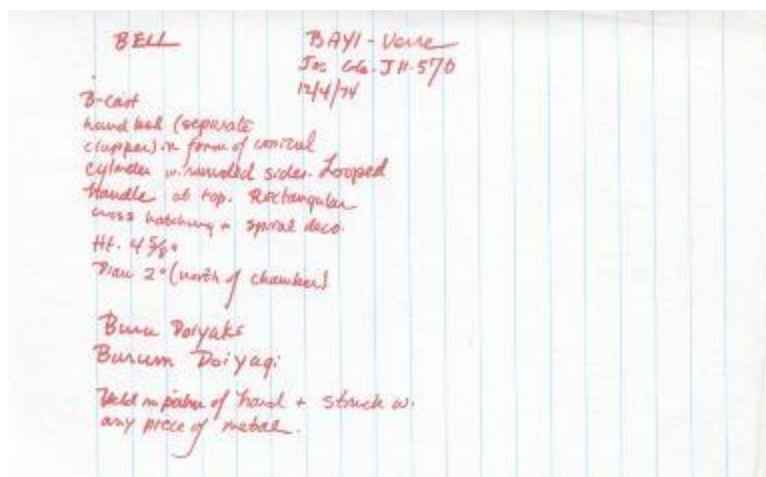 BELL
BAYI - Verre
Jos Co. JH. 570
12/4/74
B-cast
hand bell (separate
clapper) in form of conical
cylinder w. rounded sides. Looped
Handle at top. Rectangular
cross hatching + spiral deco.
Ht. 4 5/8"
Diam 2" (mouth of chamber)
Buru Doiyaks
Burum Doiyagi
Held in palm of hand + struck w.
any piece of metal.